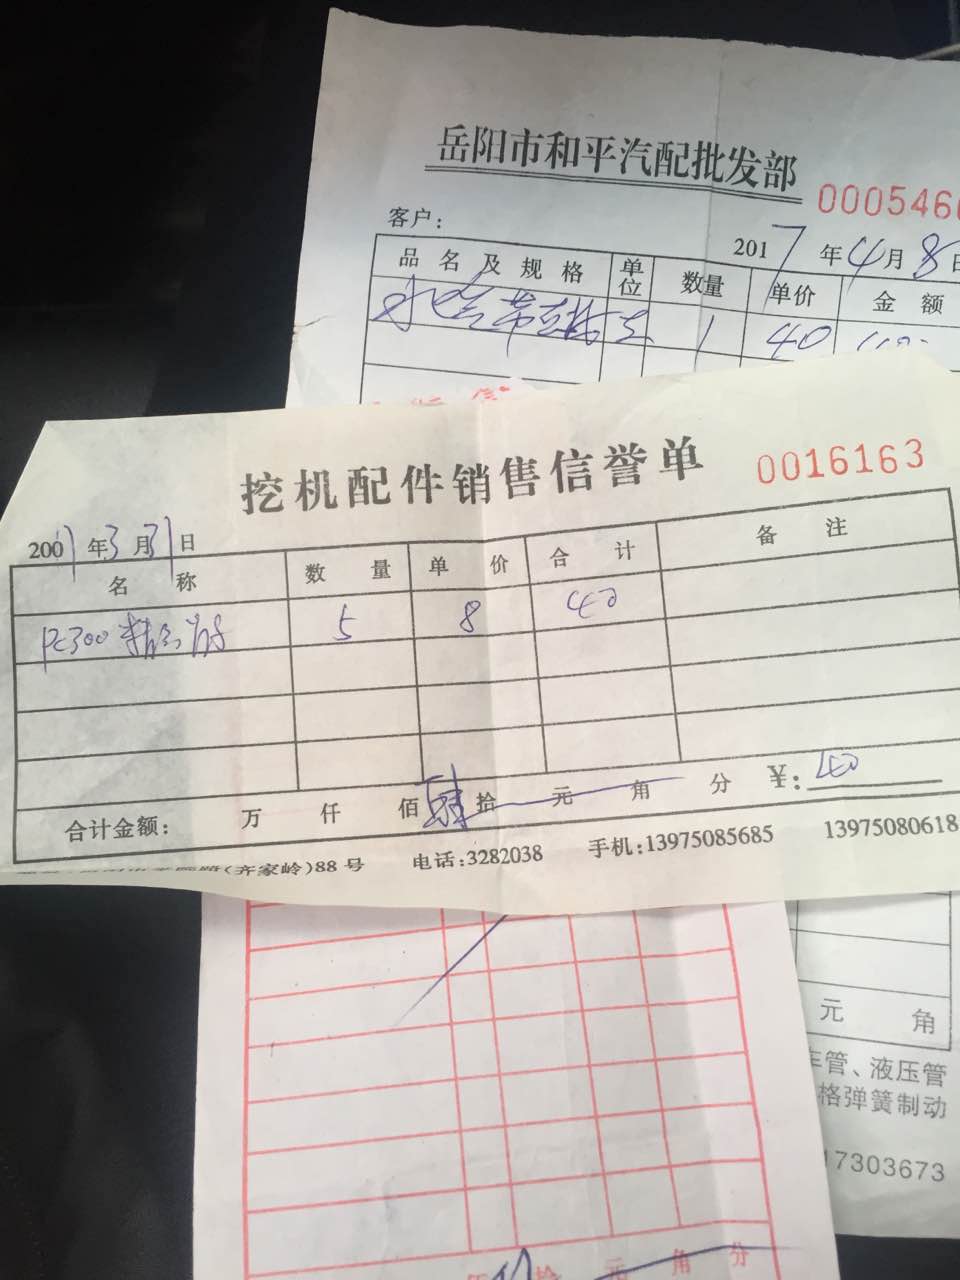 岳阳市和平汽配批发部
000546
客户：
2017年4月8日
品名及规格 单位 数量 单价 金额
1 40
挖机配件销售信誉单
0016163
200 年3月31日
名称 数量 单价 合计 备注
PC300 5 8 40
合计金额： 万 仟 佰 肆拾 元 角 分 ¥：40
(齐家岭)88号 电话:3282038 手机:13975085685 13975080618
元 角
车管、液压管
格弹簧制动
17303673
拾 元 角 分